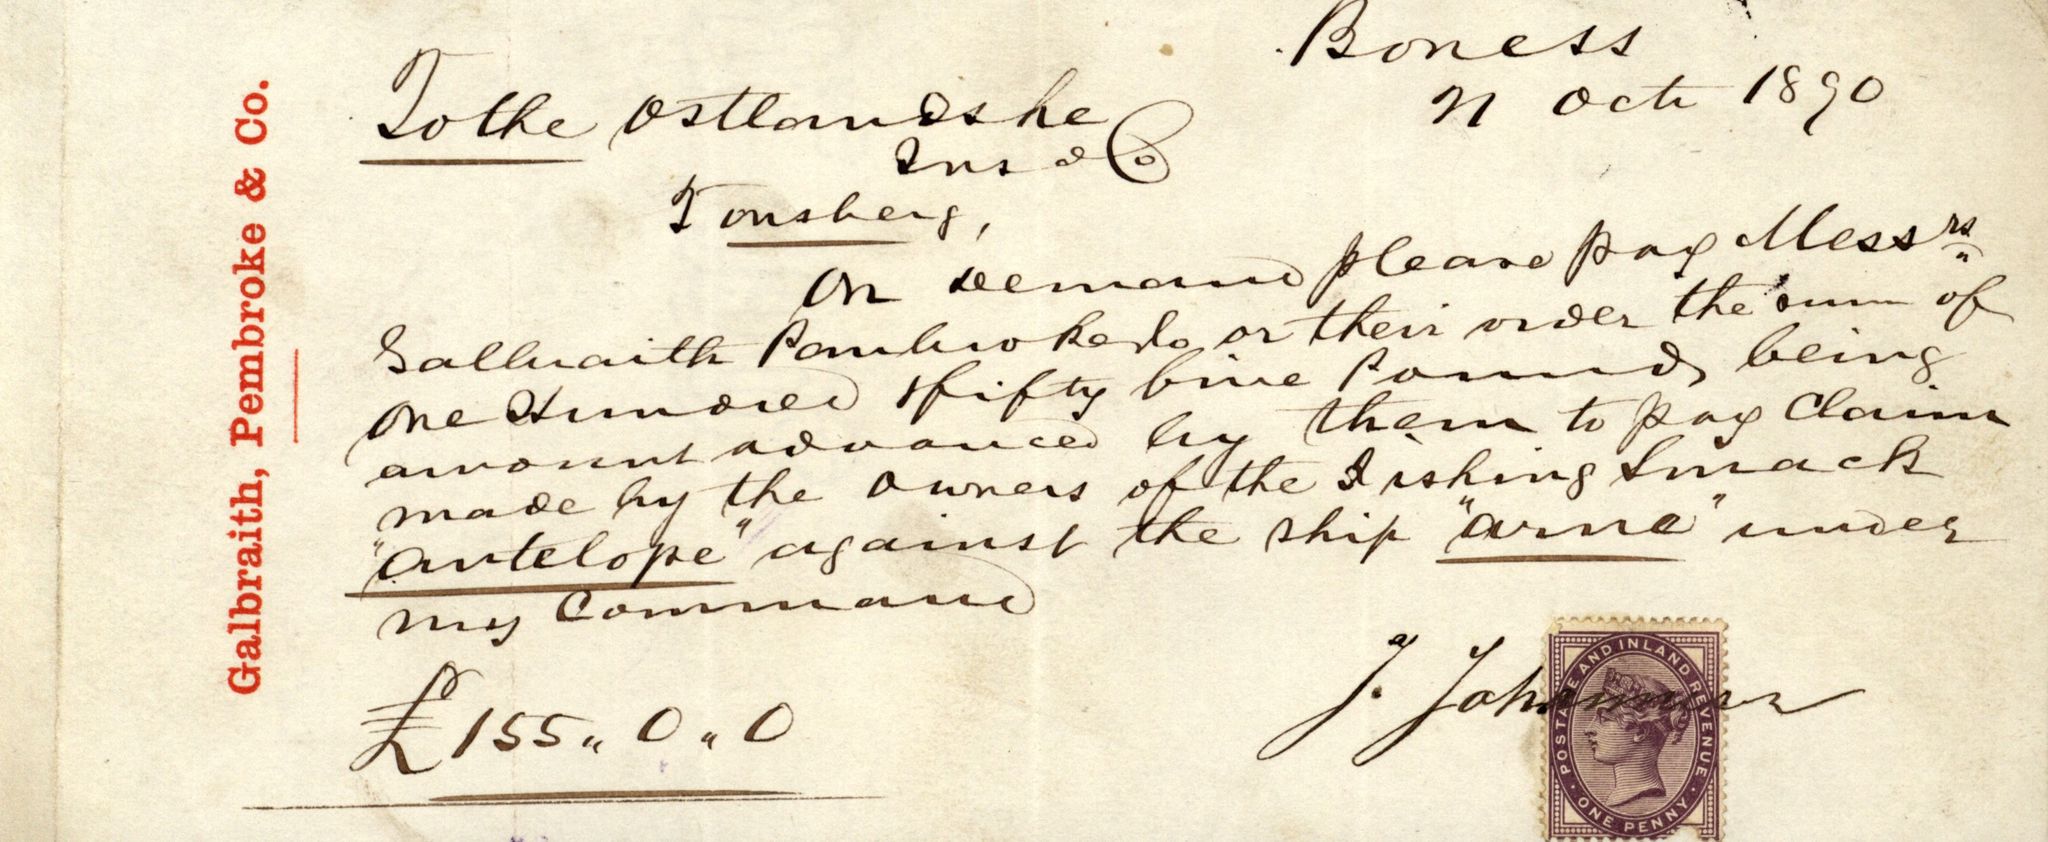 Galbraith, Pembroke & Co.
Boness
21 Oct 1890
To the Ostlandske
Ins & Co
Tonsberg,
On demand please pay Messrs
Galbraith Pembroke & Co or their order the sum of
One Hundred & fifty five Pounds being
amount advanced by them to pay Claim
made by the Owners of the Fishing Smack
"Antelope" against the ship "Arne" under
my Command
£155 ,, 0 ,, 0
J. Johannsen
POSTAGE AND INLAND REVENUE
ONE PENNY